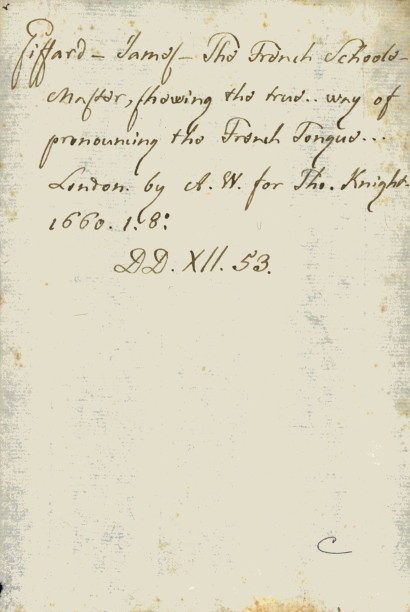 Giffard - James - The French Schoole-
Master, shewing the true.. way of
pronouncing the French Tongue...
London. by A. W. for Tho. Knight
1660. 1. 8:
DD. XII. 53.
C